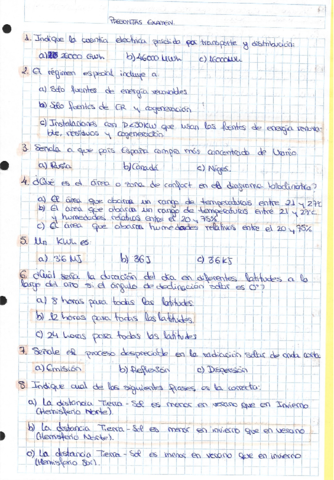 PREGUNTAS EXAMEN
1. Indique la cuantía eléctrica perdida por transporte y distribución:
a) 26000 GWh b) 26000 MWh c) 16000MWh
2. El régimen especial incluye a
a) Sólo fuentes de energía renovables
b) Sólo fuentes de ER y cogeneración
c) Instalaciones con P<50KW que usan las fuentes de energía renova-
ble, residuos y cogeneración
3. Señala a que país España compra más concentrado de Uranio
a) Rusia b) Canadá c) Niger.
4. ¿Qué es el área o zona de confort en el diagrama bioclimático?
a) El área que abarca un rango de temperaturas entre 21 y 27ºC
b) El área que abarca un rango de temperaturas entre 21 y 27ºC
y humedades relativas entre el 20 y 75%
c) El área que abarca humedades relativas entre el 20 y 75%
5. Un KWh es
a) 36 MJ b) 36 J c) 36 KJ
6. ¿Cuál sería la duración del día en diferentes latitudes a lo
largo del año si el ángulo de declinación solar es 0º?
a) 8 horas para todas las latitudes
b) 12 horas para todas las latitudes
c) 24 horas para todas las latitudes
7. Señale el proceso despreciable en la radiación solar de onda corta
a) Emisión b) Reflexión c) Dispersión
8. Indique cual de las siguientes frases es la correcta:
a) La distancia Tierra - Sol es menor en verano que en Invierno
(Hemisferio Norte).
b) La distancia Tierra - Sol es menor en invierno que en verano
(Hemisferio Norte).
c) La distancia Tierra - Sol es menor en verano que en Invierno
(Hemisferio Sur).